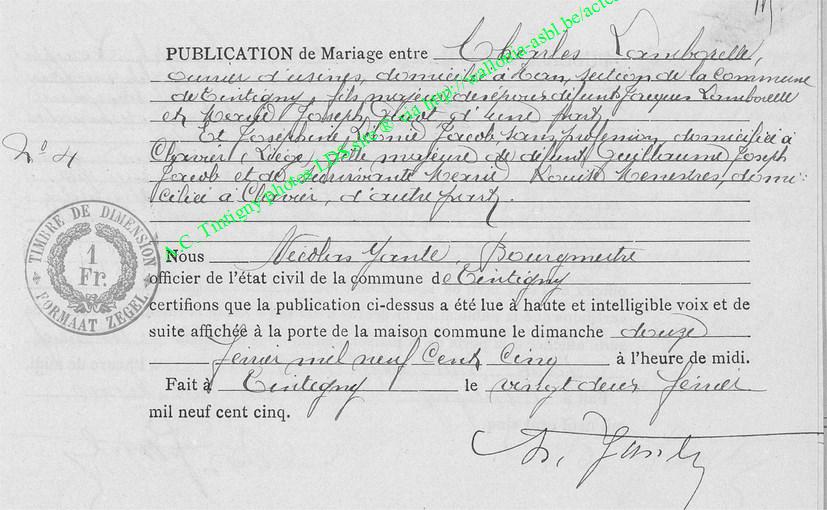 PUBLICATION de Mariage entre Charles Lamborelle,
ouvrier d'usines, domicilié à Han, section de la commune
de Tintigny, fils majeur des époux défunt Jacques Lamborelle
et Marie Joseph d'une part,
Et Joséphine Léonie Jacob, sans profession, domiciliée à
Clavier, Liège, fille majeure de défunt Guillaume Joseph
Jacob et de survivante Marie Louise Menestres, domi-
ciliée à Clavier, d'autre part.
N° 4
TIMBRE DE DIMENSION
1 Fr.
FORMAAT ZEGEL
A.C. Tintigny photos LDS site ® via http://wallonia-asbl.be/acte
Nous Nicolas Bourgmestre
officier de l'état civil de la commune de Tintigny
certifions que la publication ci-dessus a été lue à haute et intelligible voix et de
suite affichée à la porte de la maison commune le dimanche douze
février mil neuf cent cinq à l'heure de midi.
Fait à Tintigny le vingt deux février
mil neuf cent cinq.